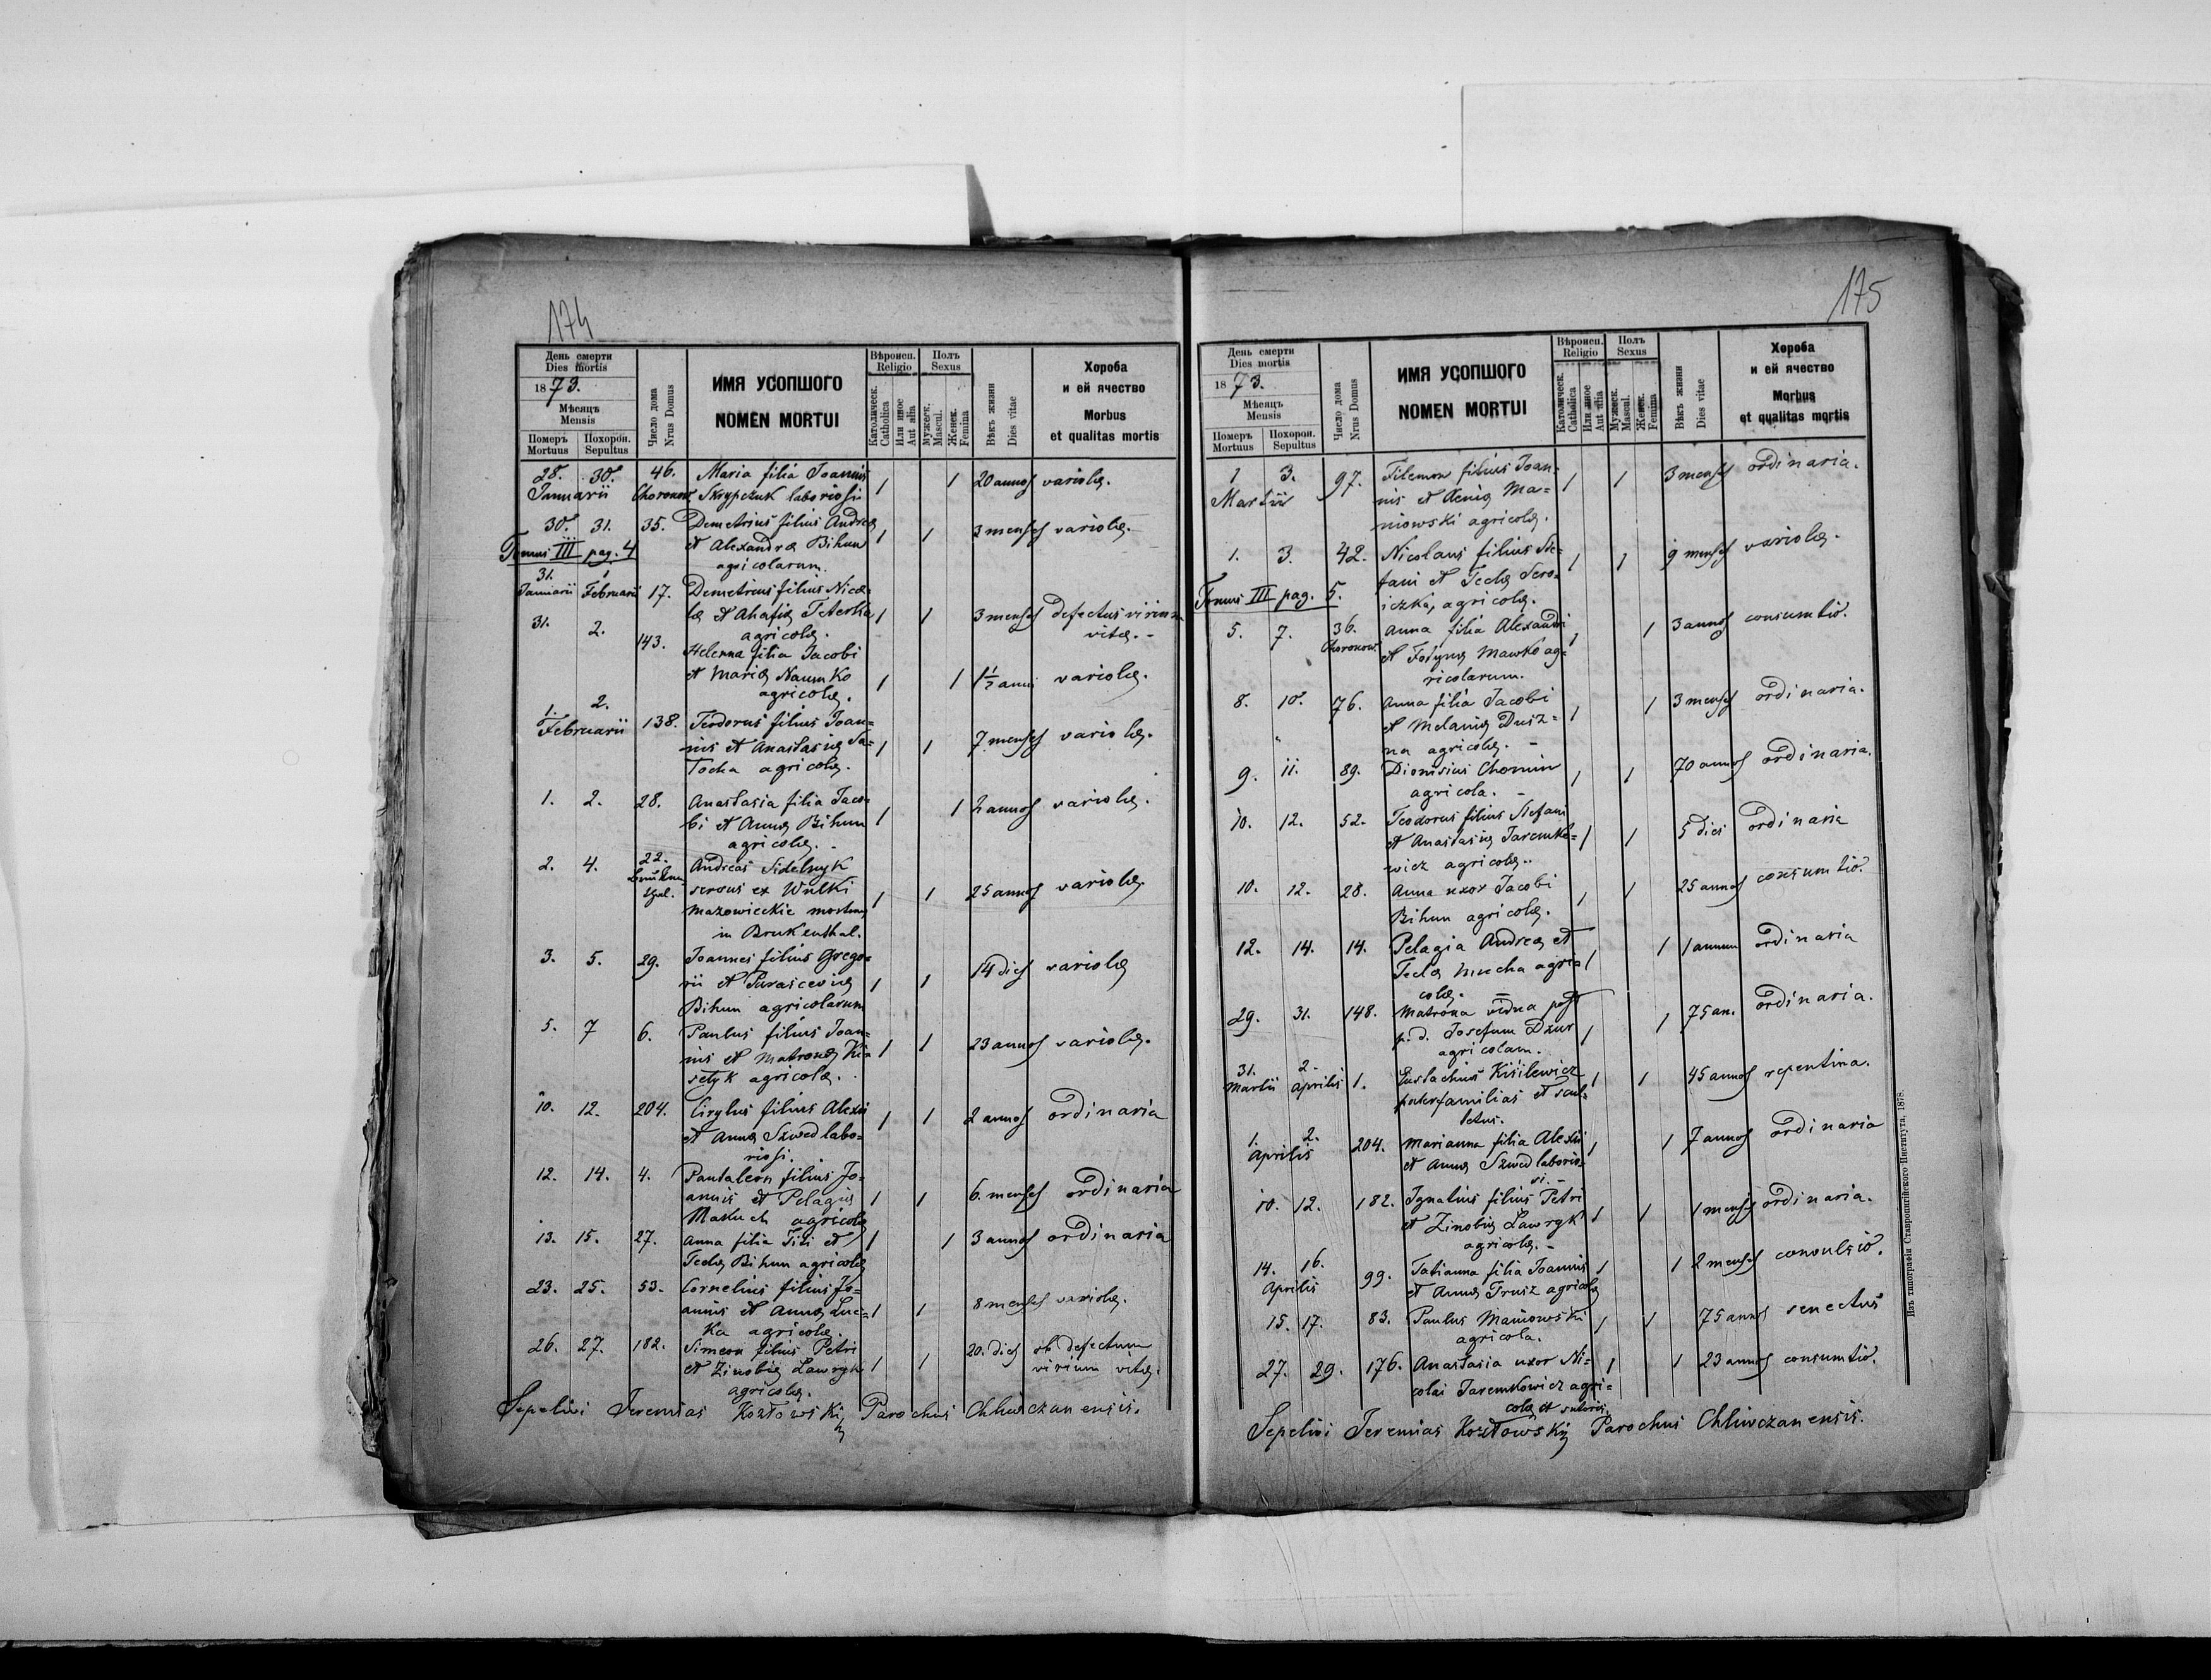 174
День смерти
Dies mortis
1873.
Мѣсяцъ
Mensis
Померъ Похорон.
Mortuus Sepultus
Число дома
Nrus Domus
ИМЯ УСОПШОГО
NOMEN MORTUI
Вѣроисп.
Religio
Католическ.
Catholica
Или иное
Aut alia
Полъ
Sexus
Мужеск.
Mascul.
Женск.
Femina
Вѣкъ жизни
Dies vitae
Хороба
и ей ячество
Morbus
et qualitas mortis
28. 30. 46. Maria filia Joannis 1 1 20 annos variolae.
Januarii Choronow Skrypczuk laboriosii
30. 31. 35. Demetrius filius Andreae 1 1 3 menses variolae.
Tomus III pag. 4 et Alexandrae Bihun
agricolarum.
31. 1
Januarii Februarii 17. Demetrius filius Nico-
lae et Ahafiae Teterka 1 1 3 menses defectus virium
agricolae. vitae. -
31. 2. 143. Helenna filia Jacobi
et Mariae Naumko 1 1 1½ anni variolae.
agricolae.
1. 2.
Februarii 138. Teodorus filius Joan=
nis et Anastasiae Sa= 1 1 7 menses variolae.
Tocha agricolae.
1. 2. 28. Anastasia filia Jaco- 1 1 2 annos variolae.
bi et Annae Bihun
agricolae. -
2. 4. 22. Andreas Sidelnyk
servus ex Wulki 1 1 25 annos variolae.
Mazowieckie mortuus
in Brukenthal.
3. 5. 29. Joannes filius Grego=
rii et Parasceviae 1 1 14 dies variolae
Bihun agricolarum
5. 7 6. Paulus filius Joan=
nis et Matronae Ki= 1 1 23 annos variolae.
setyk agricolae.
10. 12. 204. Cirylus filius Alexii 1 1 2 annos ordinaria
et Annae Szwed labo=
riosi.
12. 14. 4. Pantaleon filius Jo=
annis et Pelagiae 1 1 6. menses ordinaria
Makuch agricolae
13. 15. 27. Anna filia Titi et 1 1 3 annos ordinaria
Teclae Bihun agricolae
23. 25. 53. Cornelius filius Jo=
annis et Annae Luc= 1 1 8 menses variolae.
ka agricolae.
26. 27. 182. Simeon filius Petri 20. dies ob defectum
et Zinobiae Lawryk 1 1 virium vitae.
agricolae.
Sepelivi Jeremias Kozłowskij Parochus Chliwczanensis.
175
День смерти
Dies mortis
1873.
Мѣсяцъ
Mensis
Померъ Похорон.
Mortuus Sepultus
Число дома
Nrus Domus
ИМЯ УСОПШОГО
NOMEN MORTUI
Вѣроисп.
Religio
Католическ.
Catholica
Или иное
Aut alia
Полъ
Sexus
Мужеск.
Mascul.
Женск.
Femina
Вѣкъ жизни
Dies vitae
Хороба
и ей ячество
Morbus
et qualitas mortis
1 3. 97. Filemon filius Joan- 1 1 3 menses ordinaria.
Martii nis et Xeniae Ma=
niowski agricolae.
1. 3. 42. Nicolaus filius Ste- 1 1 9 menses variolae.
fani et Teclae Sero-
Tomus III pag. 5. iczka, agricolae.
5. 7. 36. Anna filia Alexandri 1 1 3 annos consumtio.
Choronow. et Fotynae Mawko ag=
ricolarum.
8. 10. 76. Anna filia Jacobi 1 1 3 menses ordinaria.
et Melaniae Dusz=
na agricolae. -
9. 11. 89. Dionisius Chomin 1 1 70 annos ordinaria.
agricola. -
10. 12. 52. Teodorus filius Stefani
et Anastasiae Jaremko= 1 1 5 dies ordinaria
wicz agricolae..
10. 12. 28. Anna uxor Jacobi 1 1 25 annos consumtio.
Bihun agricolae.
12. 14. 14. Pelagia Andreae et 1 1 1 annum ordinaria
Teclae Mucha agri
colae.
29. 31. 148. Matrona vidua post 1 1 75 an. ordinaria.
p. d. Josefum Dzur
agricolam.
31. 2.
Martii Aprilis 1. Eustachius Kisilewicz 1 1 45 annos repentina.
paterfamilias et scul=
tetus.
1. 2. 204. Marianna filia Alexii 1 1 7 annos ordinaria
Aprilis et Annae Szwed laborio-
si. -
10. 12. 182. Ignatius filius Petri
et Zinobiae Lawryk 1 1 1 mensis ordinaria.
agricolae. -
14. 16. 99. Tatianna filia Joannis 1 1 2 menses convulsio.
Aprilis et Annae Trusz agricolae
15. 17. 83. Paulus Maniowski 1 1 75 annos senectus
agricola.
27. 29. 176. Anastasia uxor Ni= 1 1 23 annos consumtio.
colai Jaremkowicz agri=
colae et sutoris.
Sepelivi Jeremias Kozłowskij Parochus Chliwczanensis.
Изъ типографіи Ставропигійского Института, 1878.